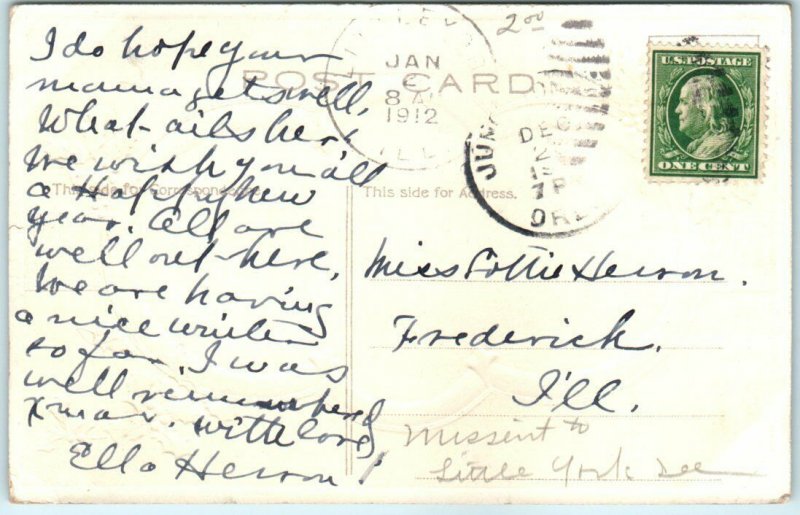 I do hope your
mama gets well,
What ails her?
We wish you all
a Happy New
year. All are
well out here,
We are having
a nice winter
so far. I was
well remembered
Xmas. With love,
Ella Herron
POST CARD
This side for Correspondence
This side for Address.
JAN
8 A
1912
ILL
2.00
JUN
DEC
2
7 P
ORE
U.S. POSTAGE
ONE CENT
Miss Lottie Herron.
Frederick.
Ill.
Missent to
Little York Ill